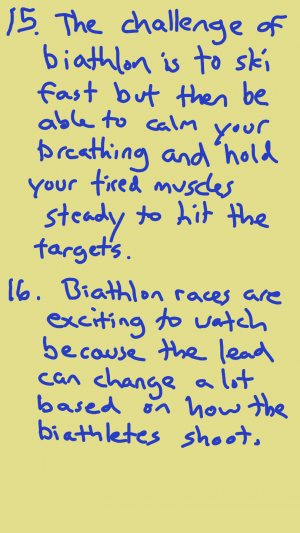 15. The challenge of
biathlon is to ski
fast but then be
able to calm your
breathing and hold
your tired muscles
steady to hit the
targets.
16. Biathlon races are
exciting to watch
because the lead
can change a lot
based on how the
biathletes shoot.